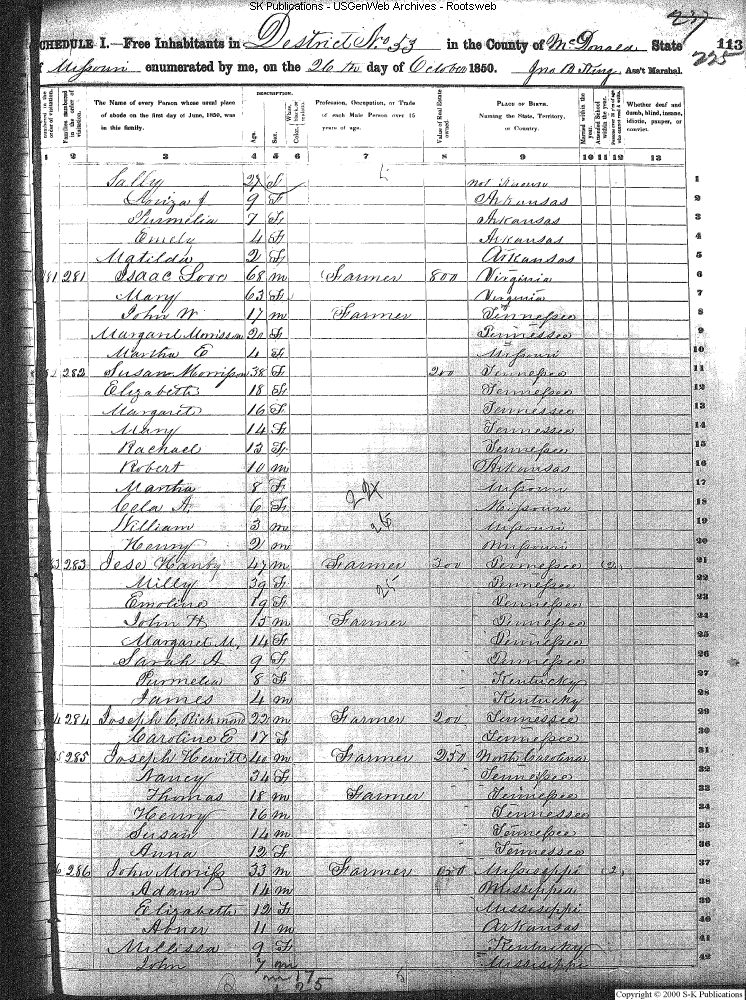 SK Publications - USGenWeb Archives - Rootsweb
SCHEDULE I.—Free Inhabitants in District No 53 in the County of McDonald State 113
of Missouri enumerated by me, on the 26th day of October 1850. Jno B King, Ass't Marshal. 225
DESCRIPTION.
The Name of every Person whose usual place of abode on the first day of June, 1850, was in this family.
Age.
Sex.
Profession, Occupation, or Trade of each Male Person over 15 years of age.
Value of Real Estate owned.
PLACE OF BIRTH. Naming the State, Territory, or Country.
Married within the year.
Attended School within the year.
Whether deaf and dumb, blind, insane, idiotic, pauper, or convict.
1 2 3 4 5 6 7 8 9 10 11 12 13
Sally 27 F not known 1
9 F Arkansas 2
Purmelia 7 F Arkansas 3
Emely 4 F Arkansas 4
Matilda 2 F Arkansas 5
281 Isaac Love 68 m Farmer 800 Virginia 6
Mary 63 F Virginia 7
John W 17 m Farmer Tennessee 8
Margaret Morrisson 20 F Tennessee 9
Martha E 4 F Missouri 10
282 Susan Morrisson 38 F 200 Tennessee 11
Elizabeth 18 F Tennessee 12
Margaret 16 F Tennessee 13
Mary 14 F Tennessee 14
Rachael 13 F Tennessee 15
Robert 10 m Arkansas 16
Martha 8 F Missouri 17
Cela A. 6 F Missouri 18
William 3 m Missouri 19
Henry 2 m Missouri 20
283 Jese Hanby 47 m Farmer 200 Tennessee 21
Milly 39 F Tennessee 22
Emoline 19 F Tennessee 23
John H. 15 m Farmer Tennessee 24
Margaret M. 14 F Tennessee 25
Sarah A 9 F Tennessee 26
Purmelia 8 F Kentucky 27
James 4 m Kentucky 28
284 Joseph C. Richmond 22 m Farmer 200 Tennessee 29
Caroline E 17 F Tennessee 30
285 Joseph Hewitt 40 m Farmer 250 North Carolina 31
Nancy 34 F Tennessee 32
Thomas 18 m Farmer Tennessee 33
Henry 16 m Tennessee 34
Susan 14 m Tennessee 35
Anna 12 F Tennessee 36
286 John Morriss 33 m Farmer Mississippi 37
Adam 14 m Mississippi 38
Elizabeth 12 F Mississippi 39
Abner 11 m Arkansas 40
Millissa 9 F Kentucky 41
John 7 m Mississippi 42
m 17
25
Copyright © 2000 S-K Publications